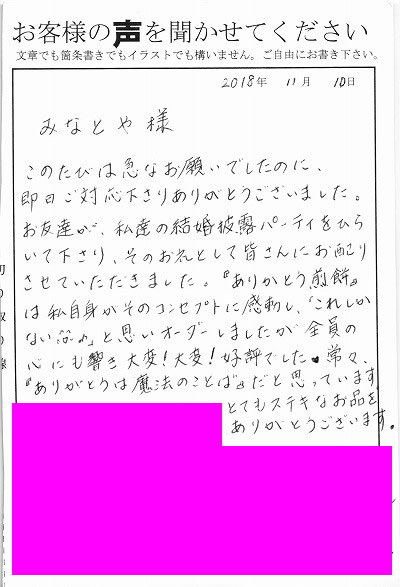 お客様の声を聞かせてください
文章でも箇条書きでもイラストでも構いません。ご自由にお書き下さい。
2018年 11月 10日
みなとや様
このたびは急なお願いでしたのに、
即日ご対応下さりありがとうございました。
お友達が、私達の結婚披露パーティをひら
いて下さり、そのお礼として皆さんにお配り
させていただきました。『ありがとう煎餅』
は私自身がそのコンセプトに感動し、「これしか
ない!!」と思いオーダーしましたが全員の
心にも響き大変!大変!好評でした♥常々、
『ありがとうは魔法のことば』だと思っています
とてもステキなお品を
ありがとうございます。
切り取り線